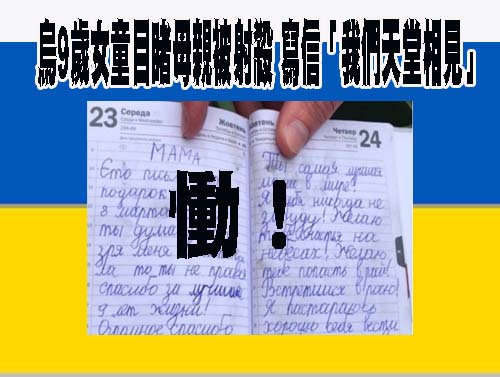 烏9歲女童目睹母親被射殺 寫信「我們天堂相見」
23 Середа
Жовтень
МАМА
Єто пись
подарок
8 марта
ты дума
зря меня
то ты не права
спасибо за лучшие
9 лет жизни!
Огромное спасибо
慟！
Жовтень
Четвер 24
Ты самая лучшая
в мире!
тебя никогда не
Желаю
на
небесах! Желаю
тебе попасть в рай!
Встретимся в раю!
Я пастараюс
хорошо себя вести